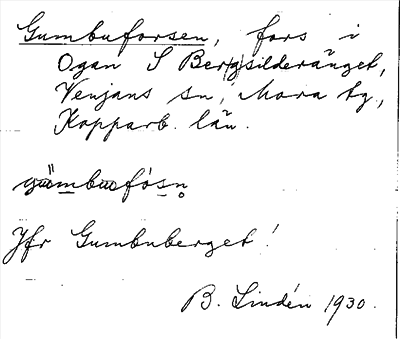 Gumbuforsen, fors i
Ogan S Bergsilderänget,
Venjans sn, Mora tg.,
Kopparb. län.
gömbusfósn
Jfr Gumbuberget!
B. Lindén 1930.